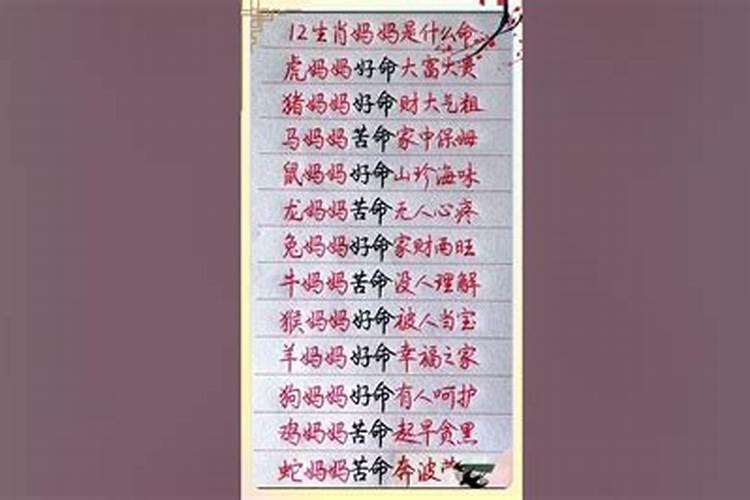 12生肖妈妈是什么命
虎妈妈好命大富大贵
猪妈妈好命财大气粗
马妈妈苦命家中保姆
鼠妈妈好命山珍海味
龙妈妈苦命无人心疼
兔妈妈好命家财两旺
牛妈妈苦命没人理解
猴妈妈好命被人当宝
羊妈妈好命幸福之家
狗妈妈好命有人呵护
鸡妈妈苦命起早贪黑
蛇妈妈苦命奔波